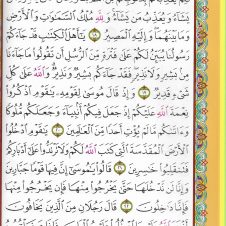 يَشَآءُ وَيُعَذِّبُ مَن يَشَآءُ وَلِلَّهِ مُلْكُ ٱلسَّمَٰوَٰتِ وَٱلْأَرْضِ
وَمَا بَيْنَهُمَا وَإِلَيْهِ ٱلْمَصِيرُ ١٨ يَٰٓأَهْلَ ٱلْكِتَٰبِ قَدْ جَآءَكُمْ
رَسُولُنَا يُبَيِّنُ لَكُمْ عَلَىٰ فَتْرَةٍ مِّنَ ٱلرُّسُلِ أَن تَقُولُوا۟ مَا جَآءَنَا
مِنۢ بَشِيرٍ وَلَا نَذِيرٍ فَقَدْ جَآءَكُم بَشِيرٌ وَنَذِيرٌ وَٱللَّهُ عَلَىٰ كُلِّ
شَىْءٍ قَدِيرٌ ١٩ وَإِذْ قَالَ مُوسَىٰ لِقَوْمِهِۦ يَٰقَوْمِ ٱذْكُرُوا۟
نِعْمَةَ ٱللَّهِ عَلَيْكُمْ إِذْ جَعَلَ فِيكُمْ أَنۢبِيَآءَ وَجَعَلَكُم مُّلُوكًا
وَءَاتَىٰكُم مَّا لَمْ يُؤْتِ أَحَدًا مِّنَ ٱلْعَٰلَمِينَ ٢٠ يَٰقَوْمِ ٱدْخُلُوا۟
ٱلْأَرْضَ ٱلْمُقَدَّسَةَ ٱلَّتِى كَتَبَ ٱللَّهُ لَكُمْ وَلَا تَرْتَدُّوا۟ عَلَىٰٓ أَدْبَارِكُمْ
فَتَنقَلِبُوا۟ خَٰسِرِينَ ٢١ قَالُوا۟ يَٰمُوسَىٰٓ إِنَّ فِيهَا قَوْمًا جَبَّارِينَ
وَإِنَّا لَن نَّدْخُلَهَا حَتَّىٰ يَخْرُجُوا۟ مِنْهَا فَإِن يَخْرُجُوا۟ مِنْهَا
فَإِنَّا دَٰخِلُونَ ٢٢ قَالَ رَجُلَانِ مِنَ ٱلَّذِينَ يَخَافُونَ